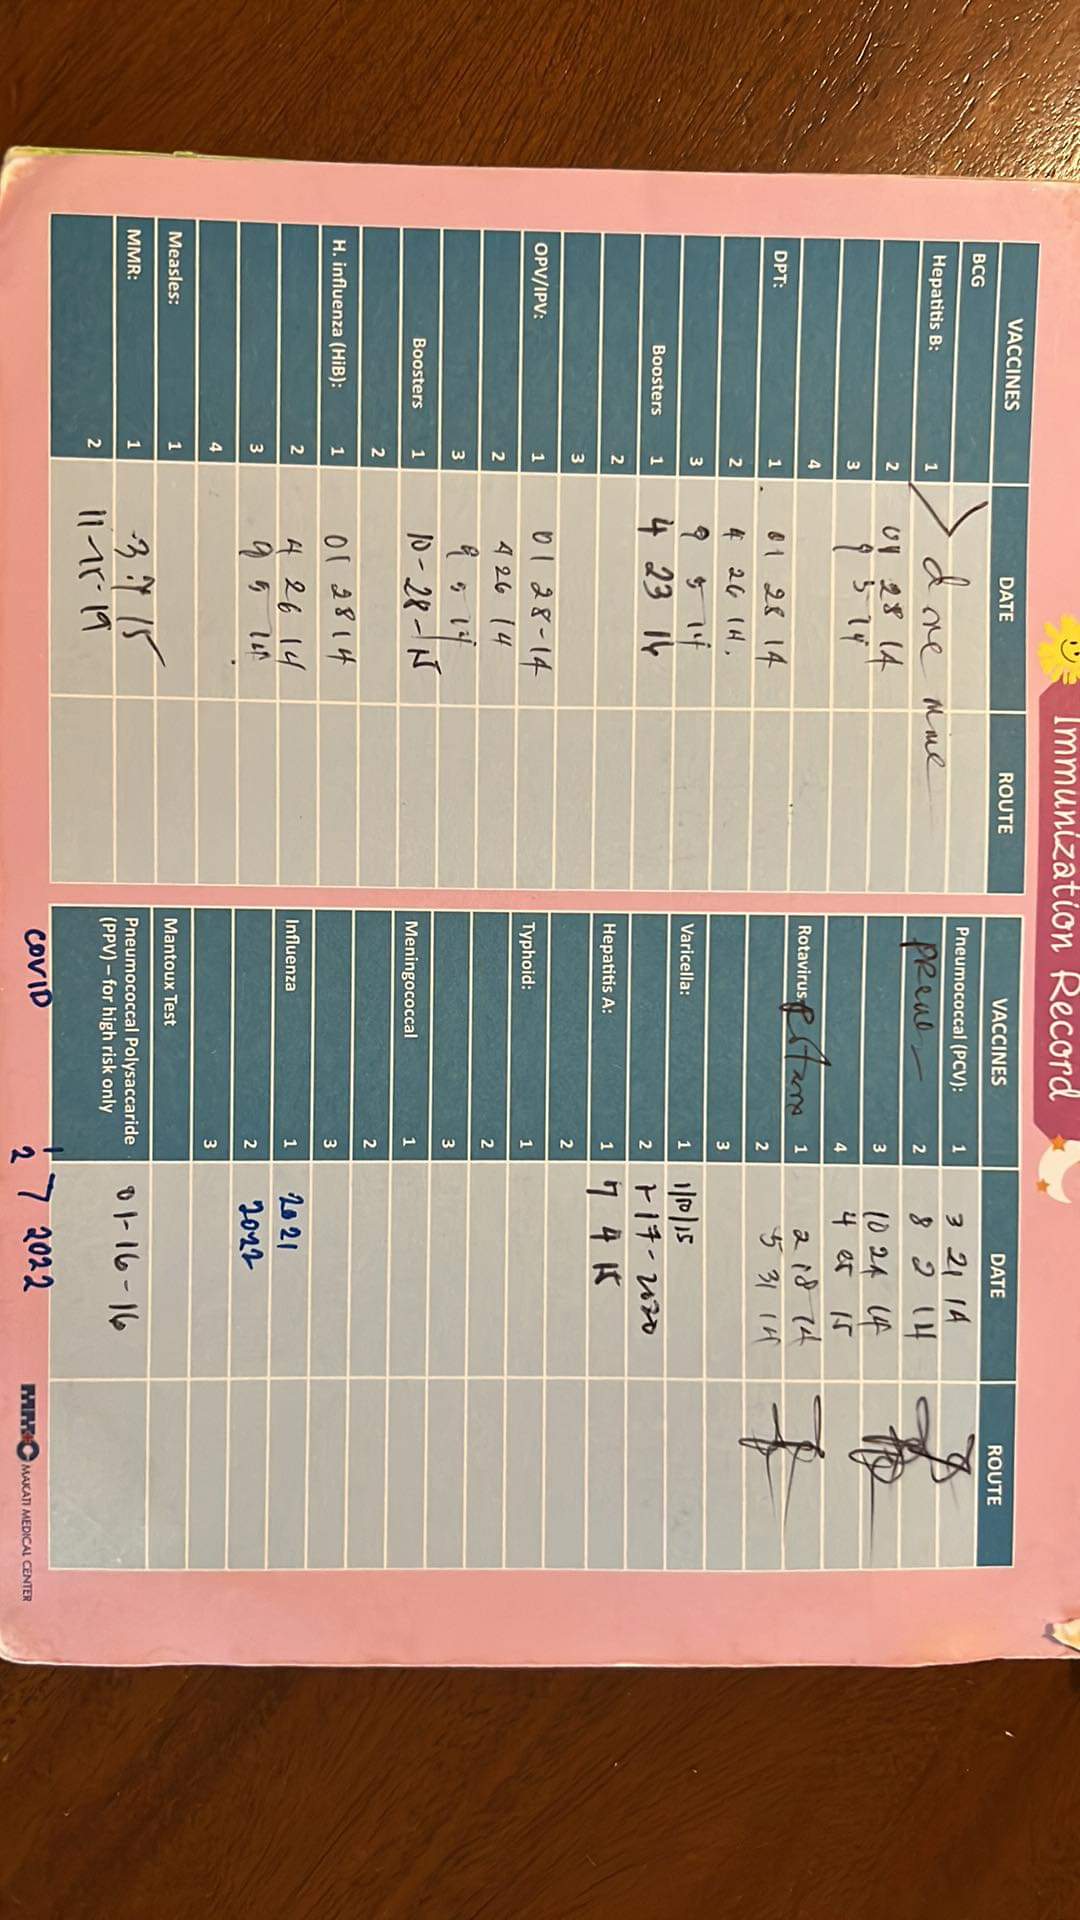 Immunization Record
VACCINES DATE ROUTE
BCG
Hepatitis B: 1
2 01 28 14
3 9 5 14
4
DPT: 1 01 28 14
2 4 26 14.
3 9 5 14
Boosters 1 4 23 16
2
3
OPV/IPV: 1 01 28-14
2 4 26 14
3 9 5 14
Boosters 1 10-28-15
2
H. influenza (HiB): 1 01 28 14
2 4 26 14
3 9 5 14
4
Measles: 1
MMR: 1 3 7 15
2 11-15-19
VACCINES DATE ROUTE
Pneumococcal (PCV): 1 3 21 14
2 8 2 14
3 10 24 14
4 4 25 15
Rotavirus: 1 2 18 14
2 5 31 14
3
Varicella: 1 1/10/15
2 2-17-2020
Hepatitis A: 1 7 4 15
2
Typhoid: 1
2
3
Meningococcal 1
2
3
Influenza 1 2021
2 2022
3
Mantoux Test
Pneumococcal Polysaccaride
(PPV) – for high risk only 01-16-16
COVID 1
2 2022
MAKATI MEDICAL CENTER